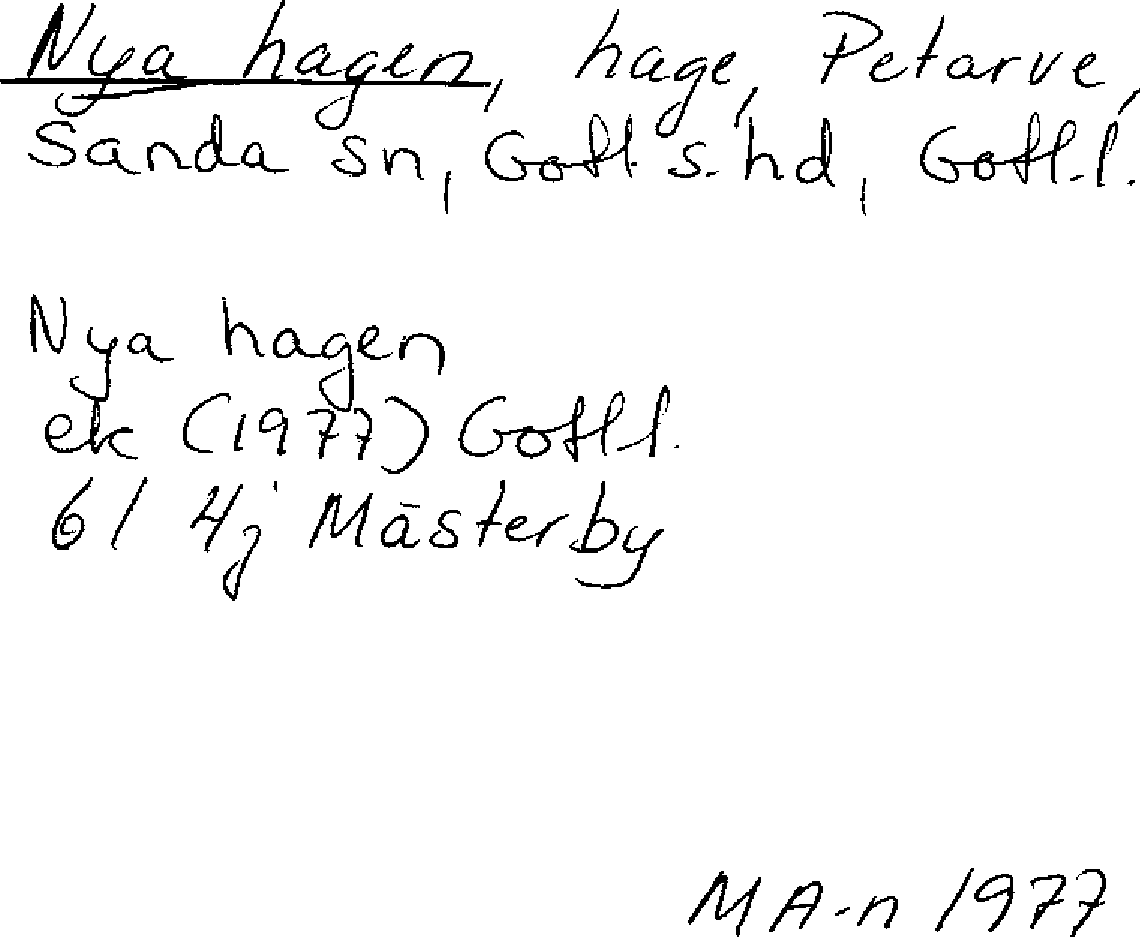 Nya hagen, hage, Petarve,
Sanda sn, Gotl. s. hd, Gotl.l.
Nya hagen
ek (1977) Gotl.l.
6I 4j Mästerby
MA-n 1977